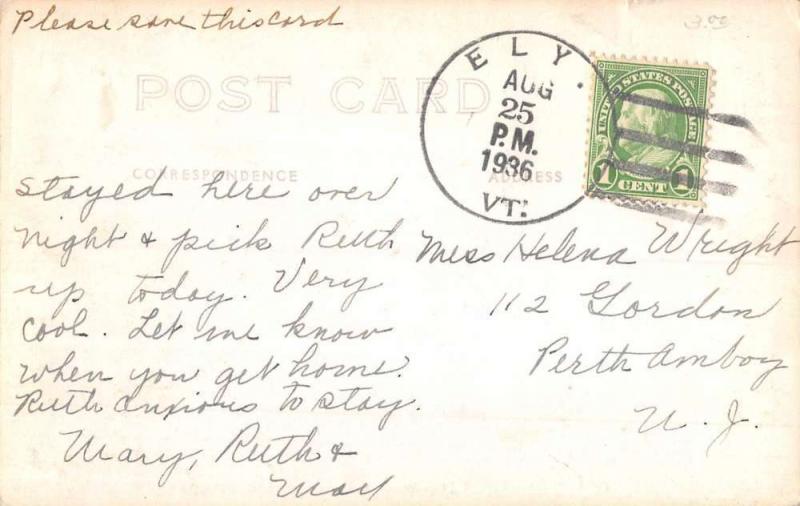 Please save this card
3.00
POST CARD
CORRESPONDENCE
ADDRESS
ELY.
AUG
25
P.M.
1936
VT.
UNITED STATES POSTAGE
1 CENT 1
stayed here over
night & pick Ruth
up today. Very
cool. Let me know
when you get home.
Ruth anxious to stay.
Mary, Ruth &
Miss Helena Wright
112 Gordon
Perth Amboy
N. J.